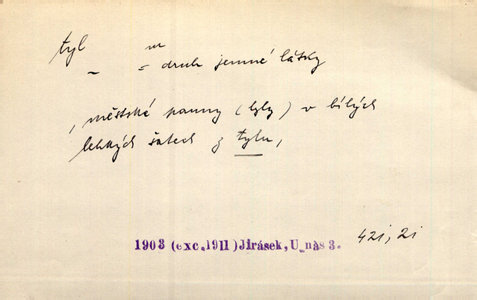 tyl m
~ = druh jemné látky
, městské panny (byly) v bílých
lehkých šatech z tylu,
1903 (exc.1911) Jirásek, U_nás 3. 42i, 2i